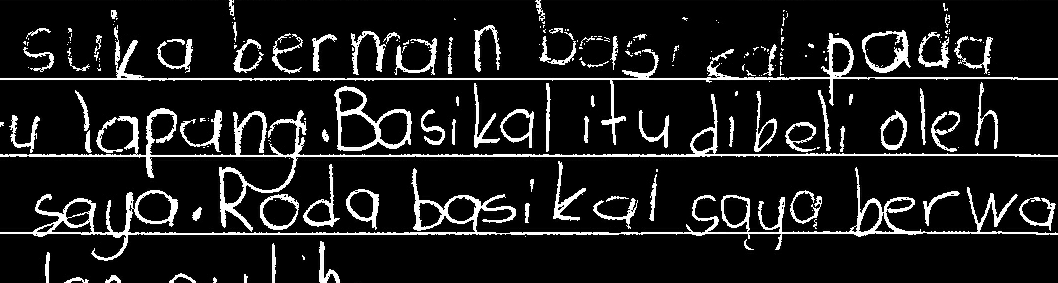 suka bermain basikal pada
u lapang. Basikal itu dibeli oleh
saya. Roda basikal saya berwa